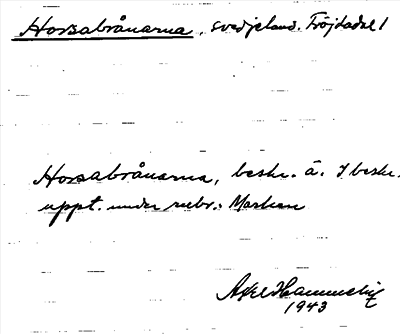 Horsabrånarna, svedjeland. Fröjdadal 1
Horsabrånarna, beskr. å. I beskr.
uppt. under rubr.: Marken
Axel Hammelin
1943